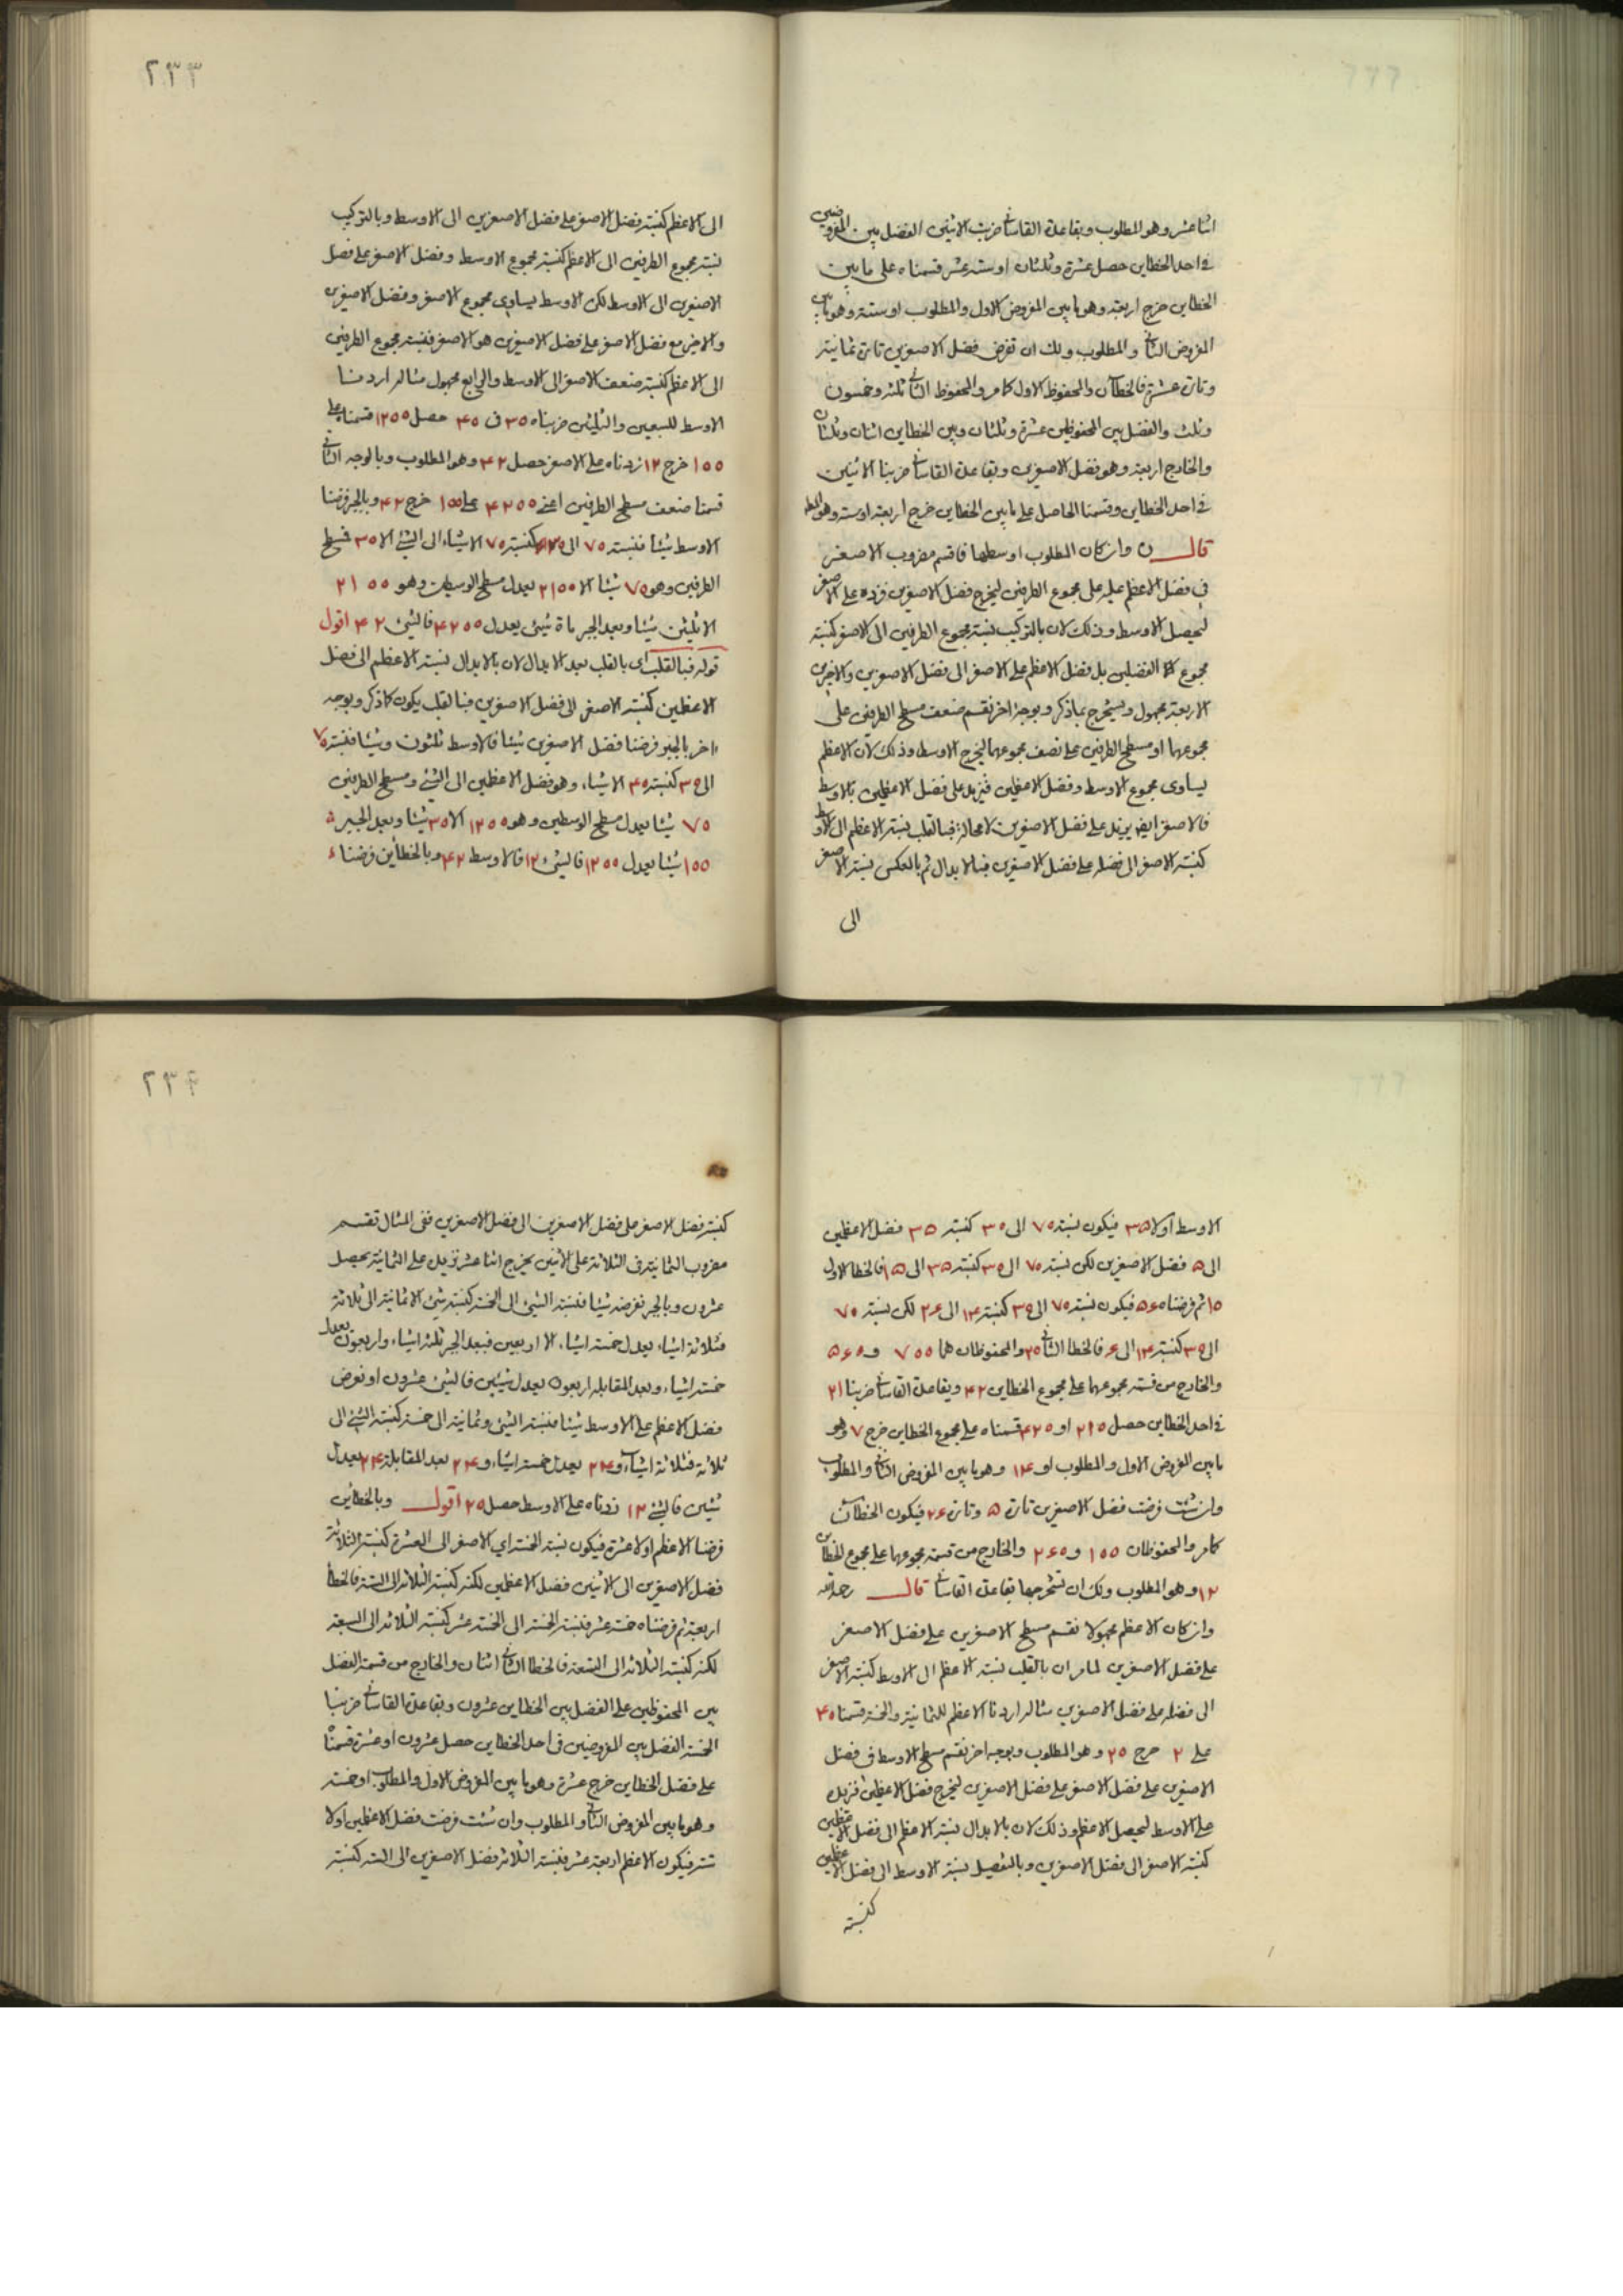 اثنا عشر وهو المطلوب وبقاعدة القاساني ضربت الاثنين الفضل بين المفروضين
في احد الخطاين حصل عشرة وثلثان او ستة عشر قسمناه على ما بين
الخطاين خرج اربعة وهو ما بين المفروض الاول والمطلوب او ستة وهو ما بين
المفروض الثاني والمطلوب ولك ان تفرض فضل الاصغرين تارة ثمانية
وتارة عشرة فالخطاآن والمحفوظ الاول كما مر والمحفوظ الثاني ثلثة وخمسون
وثلث والفضل بين المحفوظين عشرة وثلثان وبين الخطاين اثنان وثلثان
والخارج اربعة وهو فضل الاصغرين وبقاعدة القاساني ضربنا الاثنين
في احد الخطاين وقسمنا الحاصل على ما بين الخطاين خرج اربعة او ستة وهو المط
قال وان كان المطلوب اوسطها فاقسم مضروب الاصغر
في فضل الاعظم عليه على مجموع الطرفين ليخرج فضل الاصغرين فزده على الاصغر
ليحصل الاوسط وذلك لان بالتركيب نسبة مجموع الطرفين الى الاصغر كنسبة
مجموع الفضلين بل فضل الاعظم على الاصغر الى فضل الاصغرين والاخير من
الاربعة مجهول ويستخرج بما ذكر وبوجه اخر نقسم ضعف مسطح الطرفين على
مجموعهما او مسطح الطرفين على نصف مجموعهما ليخرج الاوسط وذلك لان الاعظم
يساوى مجموع الاوسط وفضل الاعظمين فيزيد على فضل الاعظمين بالاوسط
فالاصغر ايضا يزيد على فضل الاصغرين لا محالة فبالقلب نسبة الاعظم الى الاوسط
كنسبة الاصغر الى فضله على فضل الاصغرين فبالابدال ثم بالعكس نسبة الاصغر
الى
٢٣٣
الى الاعظم كنسبة فضل الاصغر على فضل الاصغرين الى الاوسط وبالتركيب
نسبة مجموع الطرفين الى الاعظم كنسبة مجموع الاوسط وفضل الاصغر على فضل
الاصغرين الى الاوسط لكن الاوسط يساوى مجموع الاصغر وفضل الاصغرين
والاخير مع فضل الاصغر على فضل الاصغرين هو الاصغر فنسبة مجموع الطرفين
الى الاعظم كنسبة ضعف الاصغر الى الاوسط والرابع مجهول مثاله اردنا
الاوسط للسبعين والثلثين ضربناه ٣٥ في ٤٥ حصل ١٢٥٥ قسمناه على
١٥٥ خرج ١٢ زدناه على الاصغر حصل ٤٢ وهو المطلوب وبالوجه الثاني
قسمنا ضعف مسطح الطرفين اعنى ٤٢٥٥ على ١٥٥ خرج ٤٢ وبالجبر فرضنا
الاوسط شيئا فنسبة ٧٥ الى ٣٥ كنسبة ٧٥ الا شيئا الى الشئ الا ٣٥ فمسطح
الطرفين وهو ٧٥ شيئا الا ٢١٥٥ يعدل مسطح الوسطين وهو ٢١٥٥
الا ثلثين شيئا وبعد الجبر ماة شئ يعدل ٤٢٥٥ فالشئ ٤٢ اقول
قوله فبالقلب اى بالقلب بعد الابدال لان بالابدال نسبة الاعظم الى فضل
الاعظمين كنسبة الاصغر الى فضل الاصغرين فبالقلب يكون كما ذكر وبوجه
اخر بالجبر فرضنا فضل الاصغرين شيئا فالاوسط ثلثون وشيئا فنسبة ٧٥
الى ٣٥ كنسبة ٤٥ الا شيئا وهو فضل الاعظمين الى الشئ ومسطح الطرفين
٧٥ شيئا يعدل مسطح الوسطين وهو ١٢٥٥ الا ٣٥ شيئا وبعد الجبر
١٥٥ شيئا يعدل ١٢٥٥ فالشئ ١٢ فالاوسط ٤٢ وبالخطاين فرضنا
الاوسط اولا ٣٥ فيكون نسبة ٧٥ الى ٣٥ كنسبة ٣٥ فضل الاعظمين
الى ٥ فضل الاصغرين لكن نسبة ٧٥ الى ٣٥ كنسبة ٣٥ الى ١٥ فالخطا الاول
١٥ ثم فرضناه ٥٦ فيكون نسبة ٧٥ الى ٣٥ كنسبة ١٤ الى ٢٦ لكن نسبة ٧٥
الى ٣٥ كنسبة ١٤ الى ٦ فالخطا الثاني ٢٥ والمحفوظان هما ٧٥٥ و ٥٦٥
والخارج من قسمة مجموعهما على مجموع الخطاين ٤٢ وبقاعدة القاساني ضربنا ٢١
في احد الخطاين حصل ٢١٥ او ٤٢٥ قسمناه على مجموع الخطاين خرج ٧ وهو
ما بين المفروض الاول والمطلوب او ١٤ وهو ما بين المفروض الثاني والمطلوب
وان شئت فرضت فضل الاصغرين تارة ٥ وتارة ٢٦ فيكون الخطاآن
كما مر والمحفوظان ١٥٥ و ٢٦٥ والخارج من قسمة مجموعهما على مجموع الخطاين
١٢ وهو المطلوب ولك ان تستخرجها بقاعدة القاساني قال رحمه الله
وان كان الاعظم مجهولا نقسم مسطح الاصغرين على فضل الاصغر
على فضل الاصغرين لما مر ان بالقلب نسبة الاعظم الى الاوسط كنسبة الاصغر
الى فضله على فضل الاصغرين مثاله اردنا الاعظم للثمانية والخمسة قسمنا ٤٥
على ٢ خرج ٢٥ وهو المطلوب وبوجه اخر نقسم مسطح الاوسط في فضل
الاصغرين على فضل الاصغر على فضل الاصغرين ليخرج فضل الاعظمين فنزيده
على الاوسط ليحصل الاعظم وذلك لان بالابدال نسبة الاعظم الى فضل الاعظمين
كنسبة الاصغر الى فضل الاصغرين وبالتفصيل نسبة الاوسط الى فضل الاعظمين
كنسبة
٢٣٤
كنسبة فضل الاصغر على فضل الاصغرين الى فضل الاصغرين ففى المثال نقسم
مضروب الثمانية في الثلاثة على الاثنين يخرج اثنا عشر نزيده على الثمانية يحصل
عشرون وبالجبر نفرضه شيئا فنسبة الشئ الى الخمسة كنسبة شئ الا ثمانية الى ثلاثة
فثلاثة اشياء يعدل خمسة اشياء الا اربعين فبعد الجبر ثلثة اشياء واربعون يعدل
خمسة اشياء وبعد المقابلة اربعون يعدل شيئين فالشئ عشرون او نفرض
فضل الاعظم على الاوسط شيئا فنسبة الشئ وثمانية الى خمسة كنسبة الشئ الى
ثلاثة فثلاثة اشياء و ٢٤ يعدل خمسة اشياء وبعد المقابلة ٢٤ يعدل
شيئين فالشئ ١٢ زدناه على الاوسط حصل ٢٥ اقول وبالخطاين
فرضنا الاعظم اولا عشرة فيكون نسبة الخمسة اي الاصغر الى العشرة كنسبة الثلاثة
فضل الاصغرين الى الاثنين فضل الاعظمين لكنه كنسبة الثلاثة الى الستة فالخطا
اربعة ثم فرضناه خمسة عشر فنسبة الخمسة الى الخمسة عشر كنسبة الثلاثة الى السبعة
لكنه كنسبة الثلاثة الى التسعة فالخطا الثاني اثنان والخارج من قسمة الفضل
بين المحفوظين على الفضل بين الخطاين عشرون وبقاعدة القاساني ضربنا
الخمسة الفضل بين المفروضين في احد الخطاين حصل عشرون او عشرة قسمنا
على فضل الخطاين خرج عشرة وهو ما بين المفروض الاول والمطلوب او خمسة
وهو ما بين المفروض الثاني والمطلوب وان شئت فرضت فضل الاعظمين اولا
ستة فيكون الاعظم اربعة عشر فنسبة الثلاثة فضل الاصغرين الى الستة كنسبة